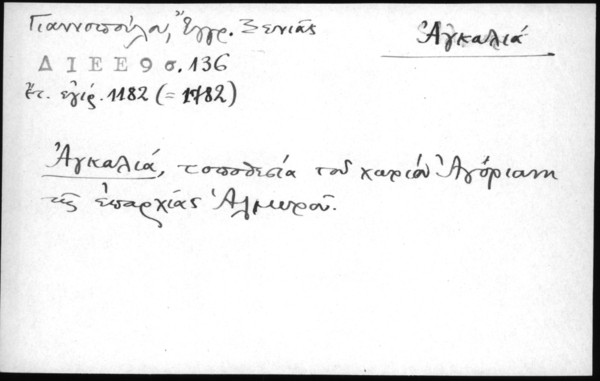 Γιαννοπούλου, Ἔγγρ. Ξενιᾶς
Ἀγκαλιά
Δ Ι Ε Ε 9 σ. 136
ἔτ. ἐγγρ. 1182 (= 1782)
Ἀγκαλιά, τοποθεσία τοῦ χωριοῦ Ἀγόριανη
τῆς ἐπαρχίας Ἁλμυροῦ.